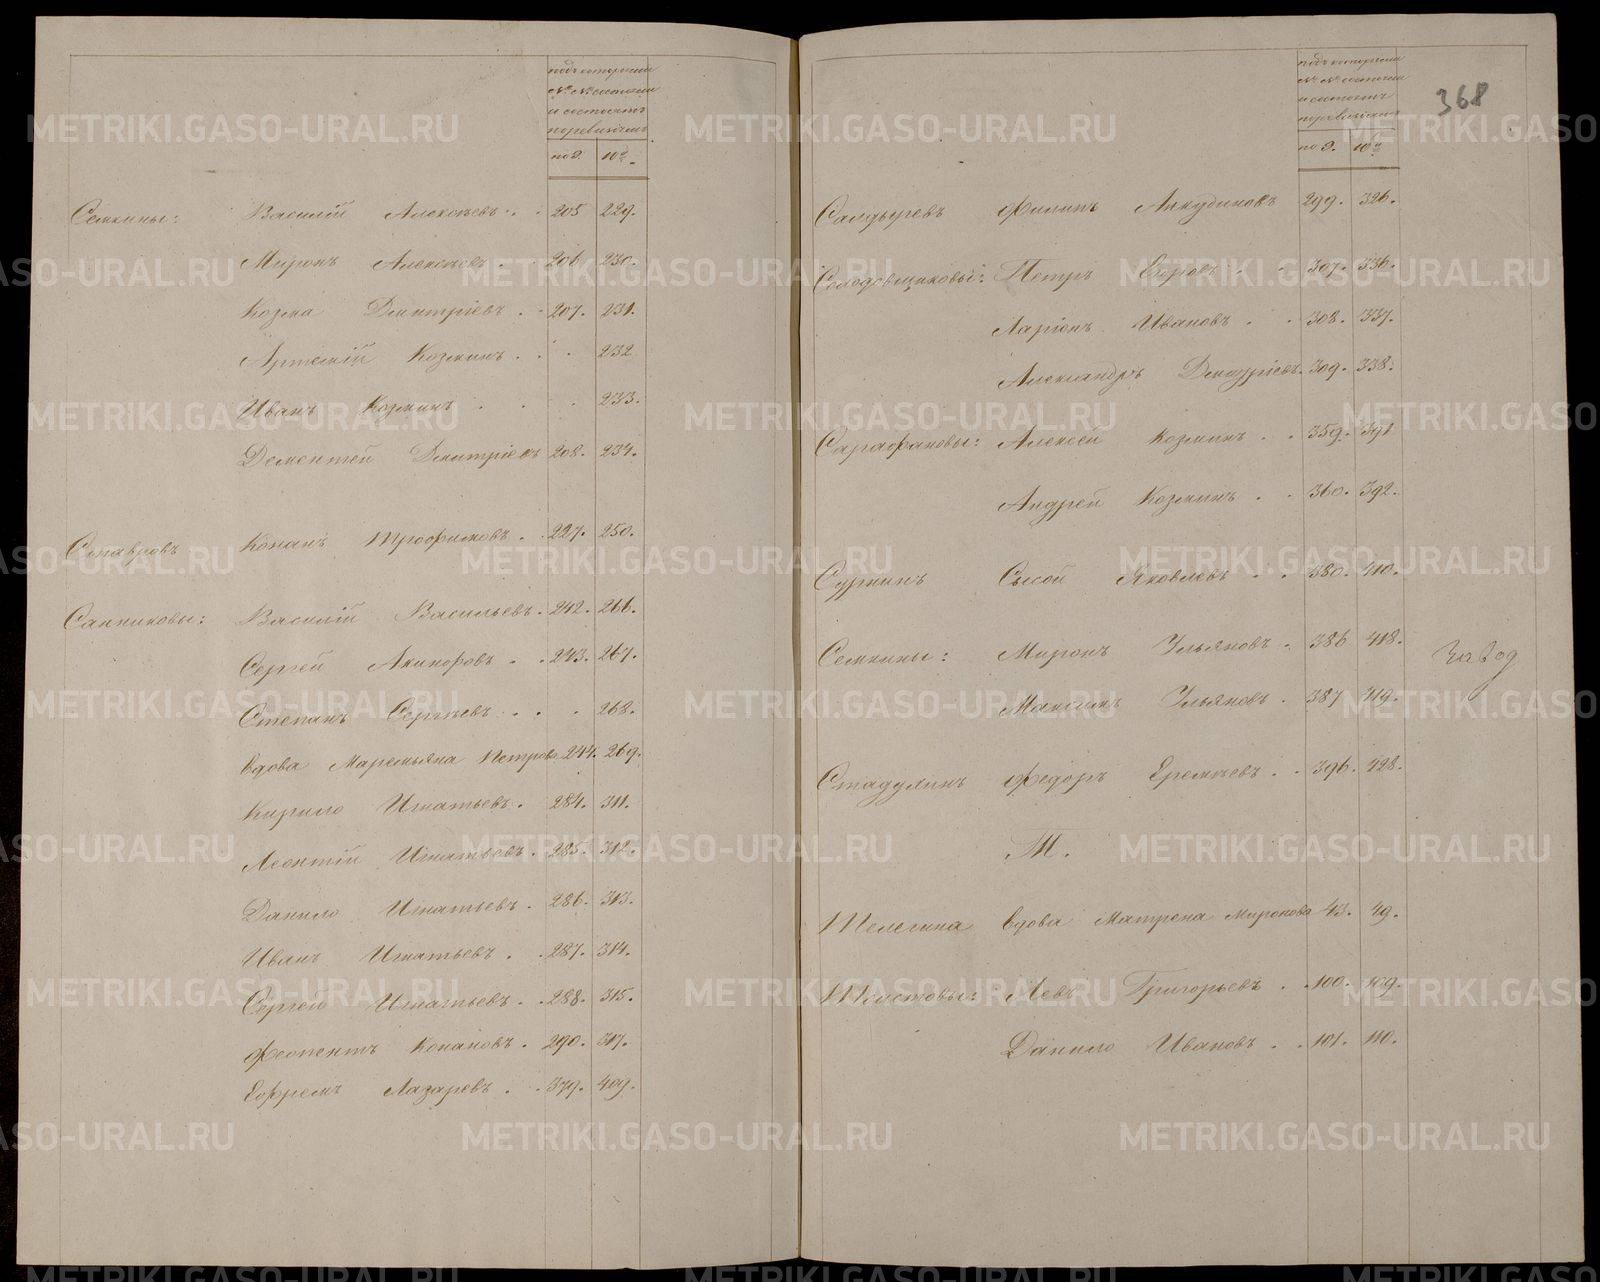 подъ которыми
№ № состояли
и состоятъ
по ревизiямъ
по 9. 10й
Семкины: Василiй Алексѣевъ 205 229.
Миронъ Алексѣевъ 206 230.
Козма Дмитрiевъ 207. 231.
Артемiй Козминъ 232
Иванъ Козминъ 233.
Дементей Дмитрiевъ 208. 234.
Ставровъ Конанъ Трофимовъ 227. 250.
Санниковы: Василiй Васильевъ 242. 266.
Сергей Аникоровъ 243. 267.
Степанъ Сергѣевъ 268.
Вдова Маремьяна Петрова 244. 269.
Кирило Игнатьевъ 284. 311.
Леонтiй Игнатьевъ 285. 312.
Данило Игнатьевъ 286. 313.
Иванъ Игнатьевъ 287. 314.
Сергей Игнатьевъ 288. 315.
Феопентъ Конановъ 290. 317.
Ефремъ Лазаревъ 379. 409.
368
подъ которыми
№ № состояли
и состоятъ
по ревизiямъ
по 9. 10й
Салдыревъ Филипъ Анкудиновъ 299. 326.
Солодовщиковы: Петръ Егоровъ 307. 336.
Ларiонъ Ивановъ 308. 337.
Александръ Дмитрiевъ 309. 338.
Сарафановы: Алексей Козминъ 359. 391
Андрей Козминъ 360. 392.
Суркинъ Сысой Яковлевъ 380. 410.
Семкины: Миронъ Ульяновъ 386 418. завод
Максимъ Ульяновъ 387 419.
Стадулинъ Федоръ Еремѣевъ 396. 428.
Т.
Телегина Вдова Матрена Миронова 43. 49.
Толстовы: Левъ Григорьевъ 100. 109.
Данило Ивановъ 101. 110.
METRIKI.GASO-URAL.RU